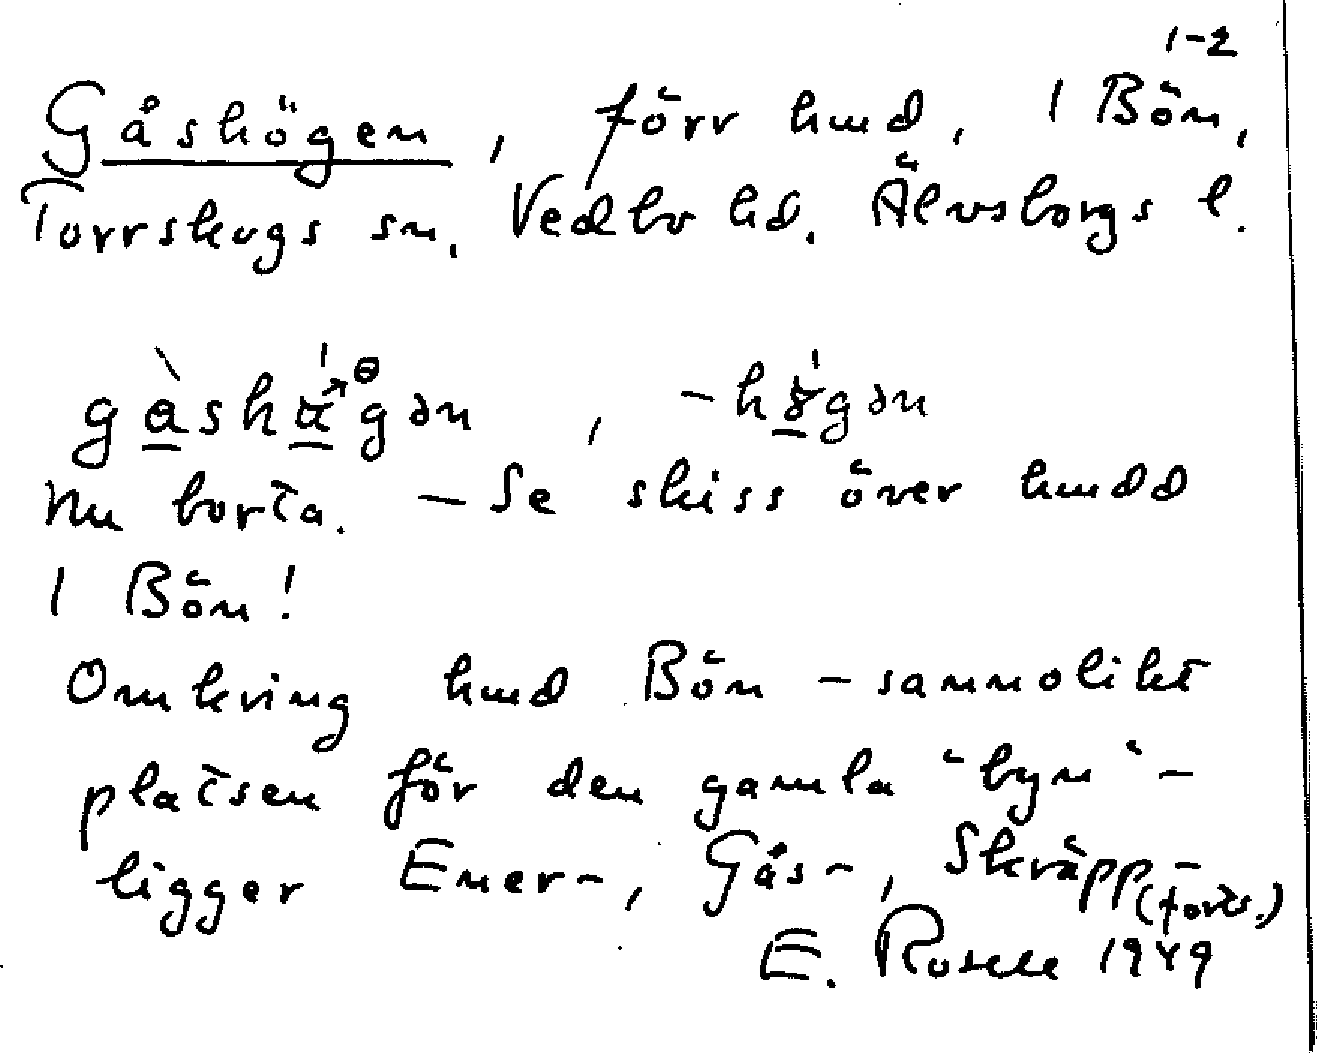 1-2
Gåshögen, förr hmd, 1 Bön,
Torrskogs sn, Vedbo hd. Älvsborgs l.
-högən
Nu borta. - Se skiss över hmdd
1 Bön!
Omkring hmd Bön - sannolikt
platsen för den gamla "byn" -
ligger Ener-, Gås-, Skräpp-
(forts.)
E. Rosell 1949